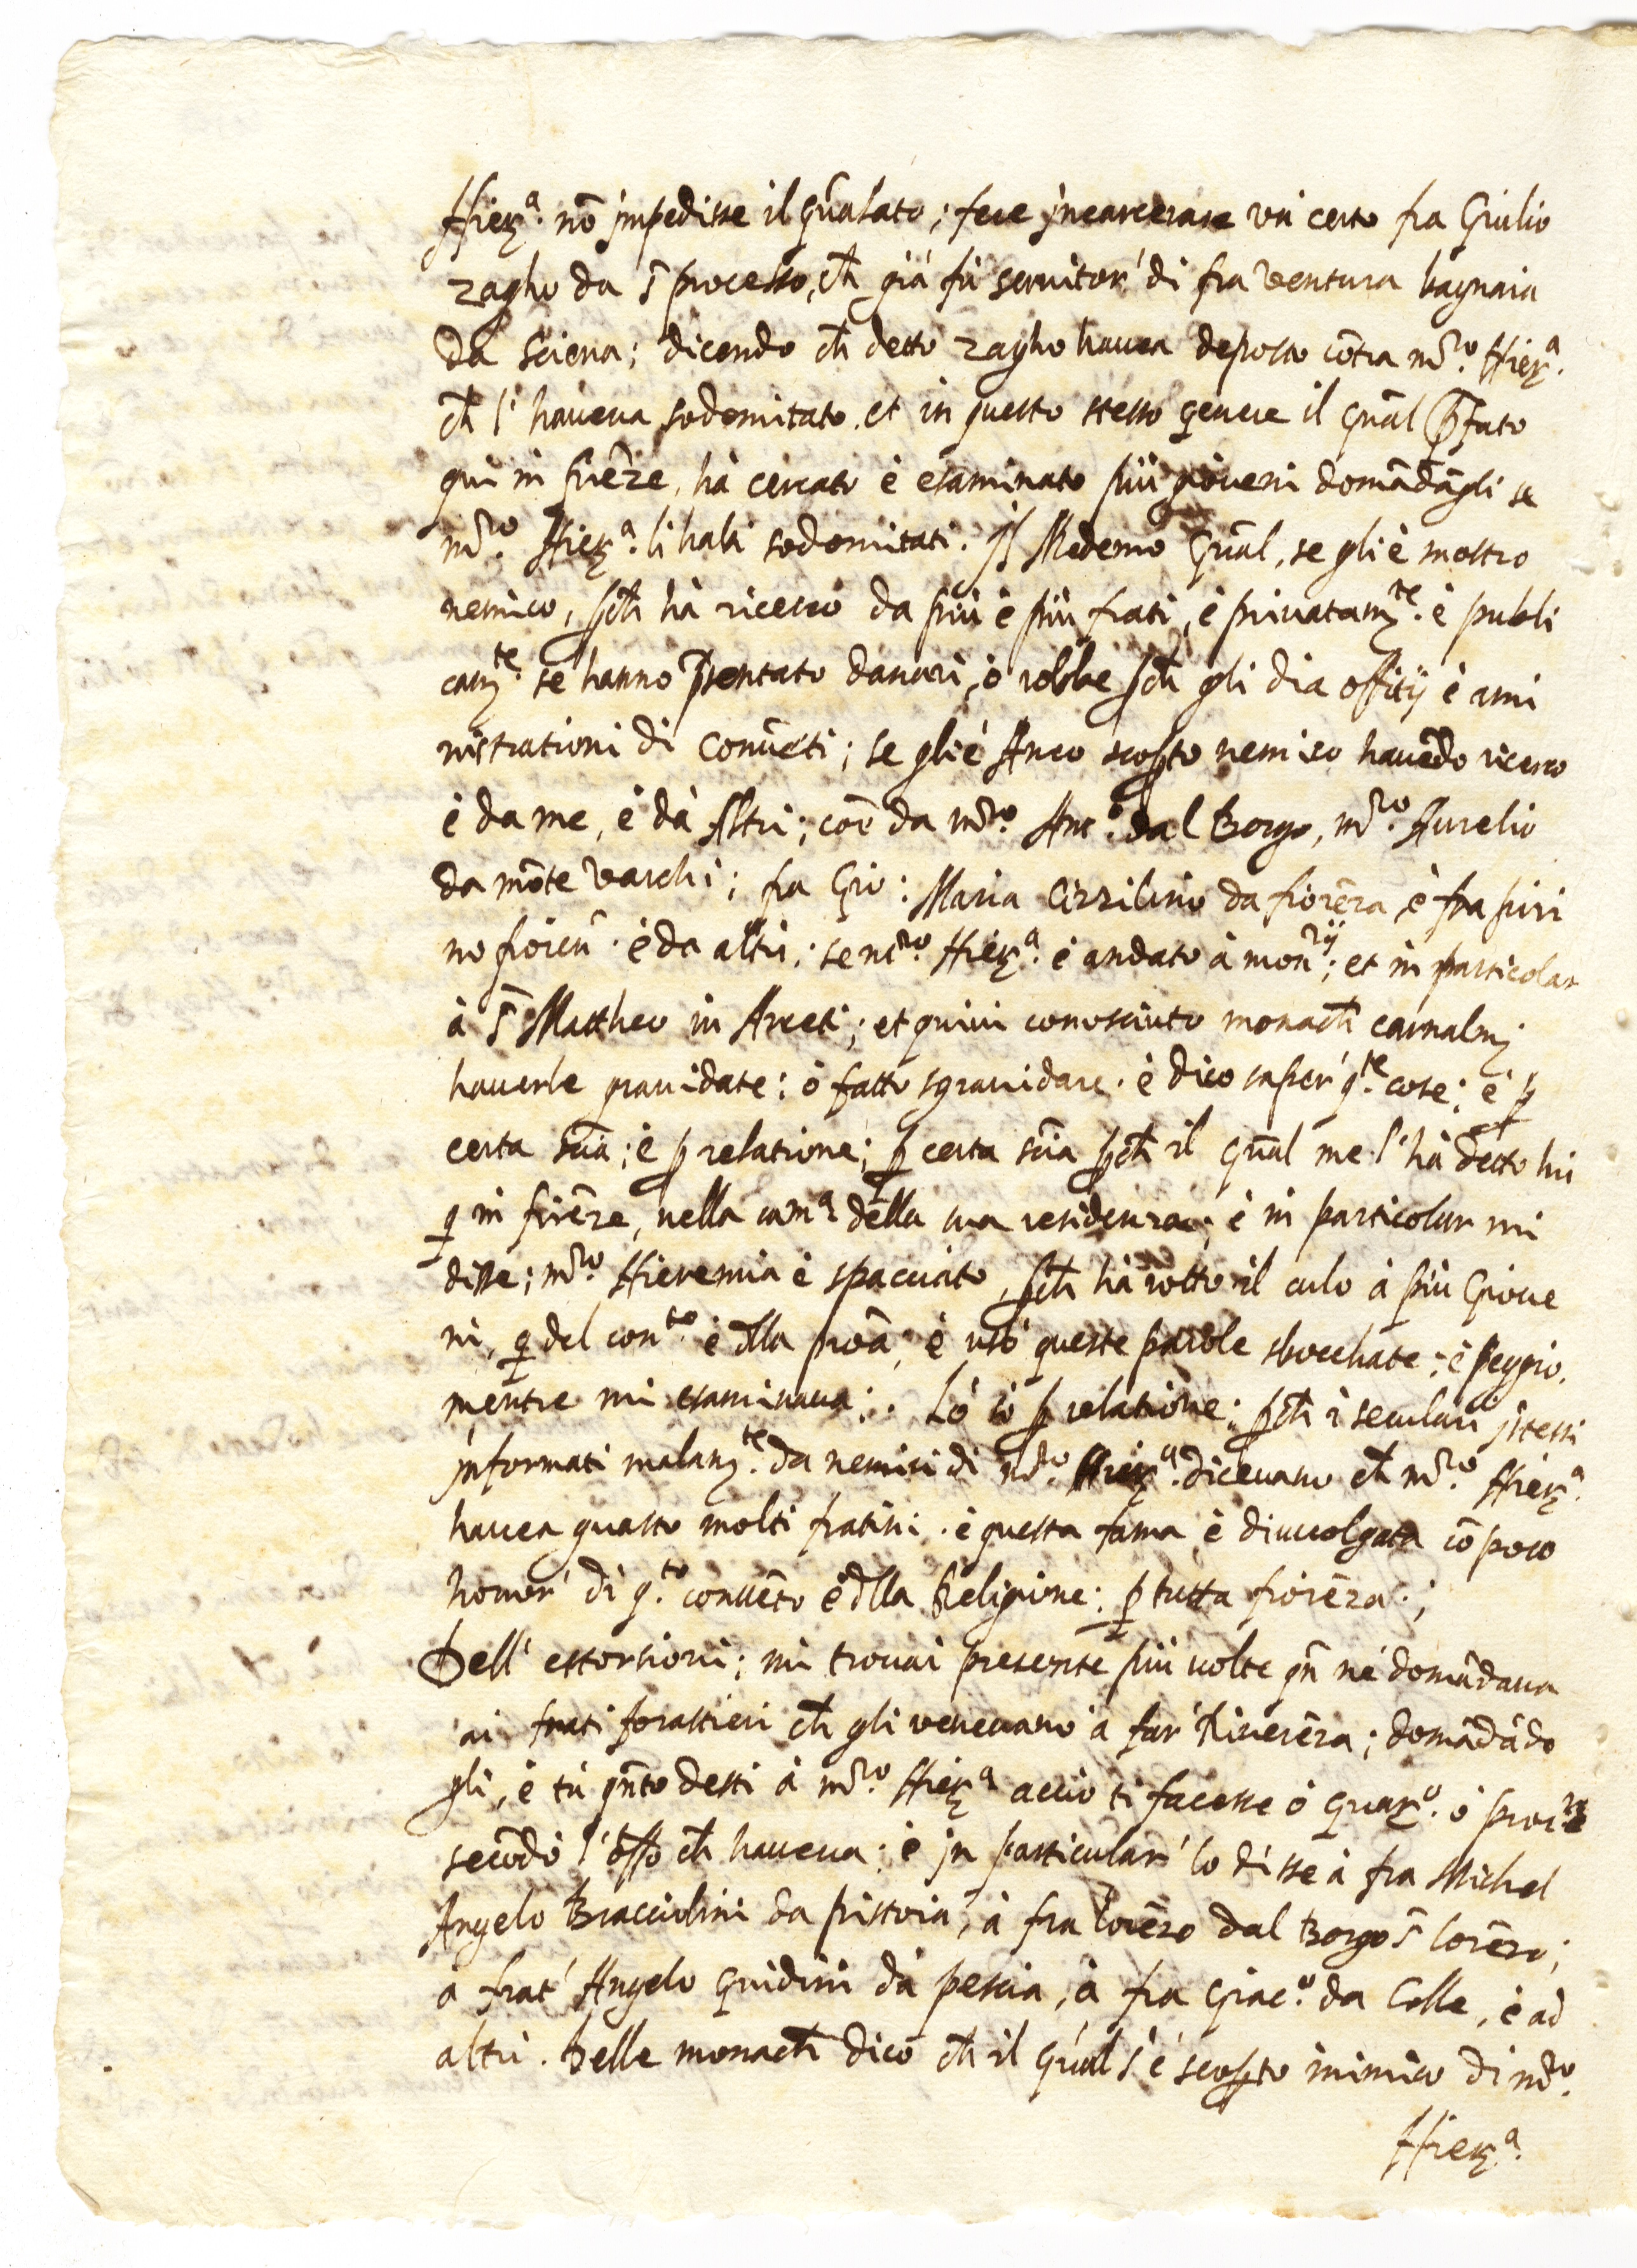 Hierᵃ. nō jmpedisse il gn̄alato; fece jncarcerare vn certo fra Giulio
zagho da S̄ processo, ch̄ già fù seruitor' di fra Ventura bagnaia
da Sciena; dicendo ch̄ detto zagho hauea deposto cōtra m̄ro. Hierᵃ.
ch̄ l'haueua sodomitato. et in questo stesso genere il gn̄al p̄fato
qui in firēze, hà cercato è esaminato più gioueni domādāgli se
m̄ro. Hierᵃ. li habi sodomitati. Jl Medemo Gn̄al, se gli è mostro
nemico, ꝑch̄ hà ricerco da più è più frati, è priuatamᵗᵉ. è publi
camᵗᵉ. se hanno p̄sentato danari, ò robbe ꝑch̄ gli dia offitij è ami
nistrationi di Conuēti; se gli è Anco scoꝑto nemico hauēdo ricerco
è da me, è da Altri; cōe da m̄ro. Antᵒ. dal Borgo, m̄ro. Aurelio
da mōte Varchi; fra Gio: Maria Cizzilino da fiorēza, è fra piri
no fiorēn. è da altri; se m̄ro. Hierᵃ. è andato à monʳⁱʲ; et in particolar
à S̄ Mattheo in Arceti; et quiui conosciuto monach̄ carnalm̄
hauerle grauidate: ò fatto sgrauidare. è dico saper' q.ᵗᵉ cose; è ꝑ
certa sc̄ia; è ꝑ relatione; ꝑ certa sc̄ia ꝑch̄ il gn̄al me l'hà detto lui
q in firēze, nella camᵃ della sua residenza; è in particolar mi
disse; m̄ro. Hieremia è spacciato, ꝑch̄ hà rotto il culo à più Gioue
ni, q del conᵗᵒ. è d̄lla prōa; è usò queste parole sbocchate; è peggio.
mentre mi esaminaua;. Lò sò ꝑ relatione; ꝑch̄ i seculari jstessi
jnformati malamᵗᵉ. da nemici di m̄ro. Hierᵃ. diceuano ch̄ m̄ro. Hierᵃ.
hauea guasto molti fratini. è questa fama è diuuolgata cō poco
honor' di q.ᵗᵒ conuēto è d̄lla Religione; ꝑ tutta fiorēza.;
Dell' estorsioni; mi trouai presente più uolte qn̄ nè domādaua
ai frati forastieri ch̄ gli veneuano à far' Riuerēza; domādādo
gli, è tù qn̄to desti à m̄ro. Hierᵃ acciò ti facesse ò Guarᵒ. ò procʳᵉ
secōdo l'offo ch̄ haueua; è jn particular' lo disse à fra Michel
Angelo Bracciolini da pistoia, à fra lorēzo dal Borgo S̄ lorēzo;
a frat' Angelo Guidini da pescia, à fra Giacᵒ. da Colle, è ad
altri. Delle monach̄ dico ch̄ il gn̄al s'è scoꝑto inimico di m̄ro.
Hierᵃ.